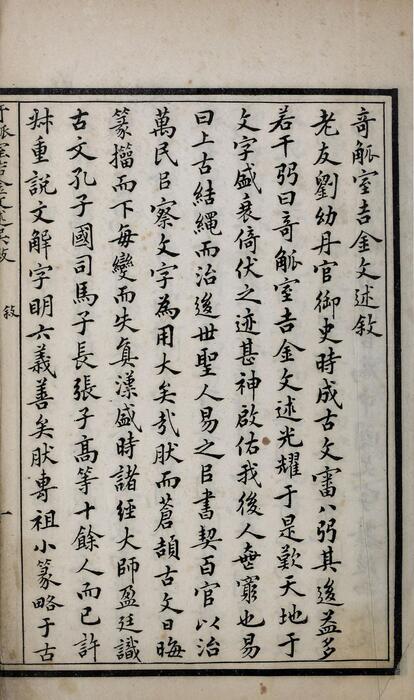 奇觚室吉金文述敘
老友劉幼丹官御史時成古文審八弜其後益多
若干弜曰奇觚室吉金文述光耀于是歎天地于
文字盛衰倚伏之迹甚神啟佑我後人無窮也易
曰上古結繩而治後世聖人易之㠯書契百官以治
萬民㠯察文字為用大矣哉肰而蒼頡古文日晦
篆籀而下每變而失真漢盛時諸經大師盈廷識
古文孔子國司馬子長張子高等十餘人而已許
尗重說文解字明六義善矣肰專祖小篆略于古
奇觚室吉金文述 敘
一